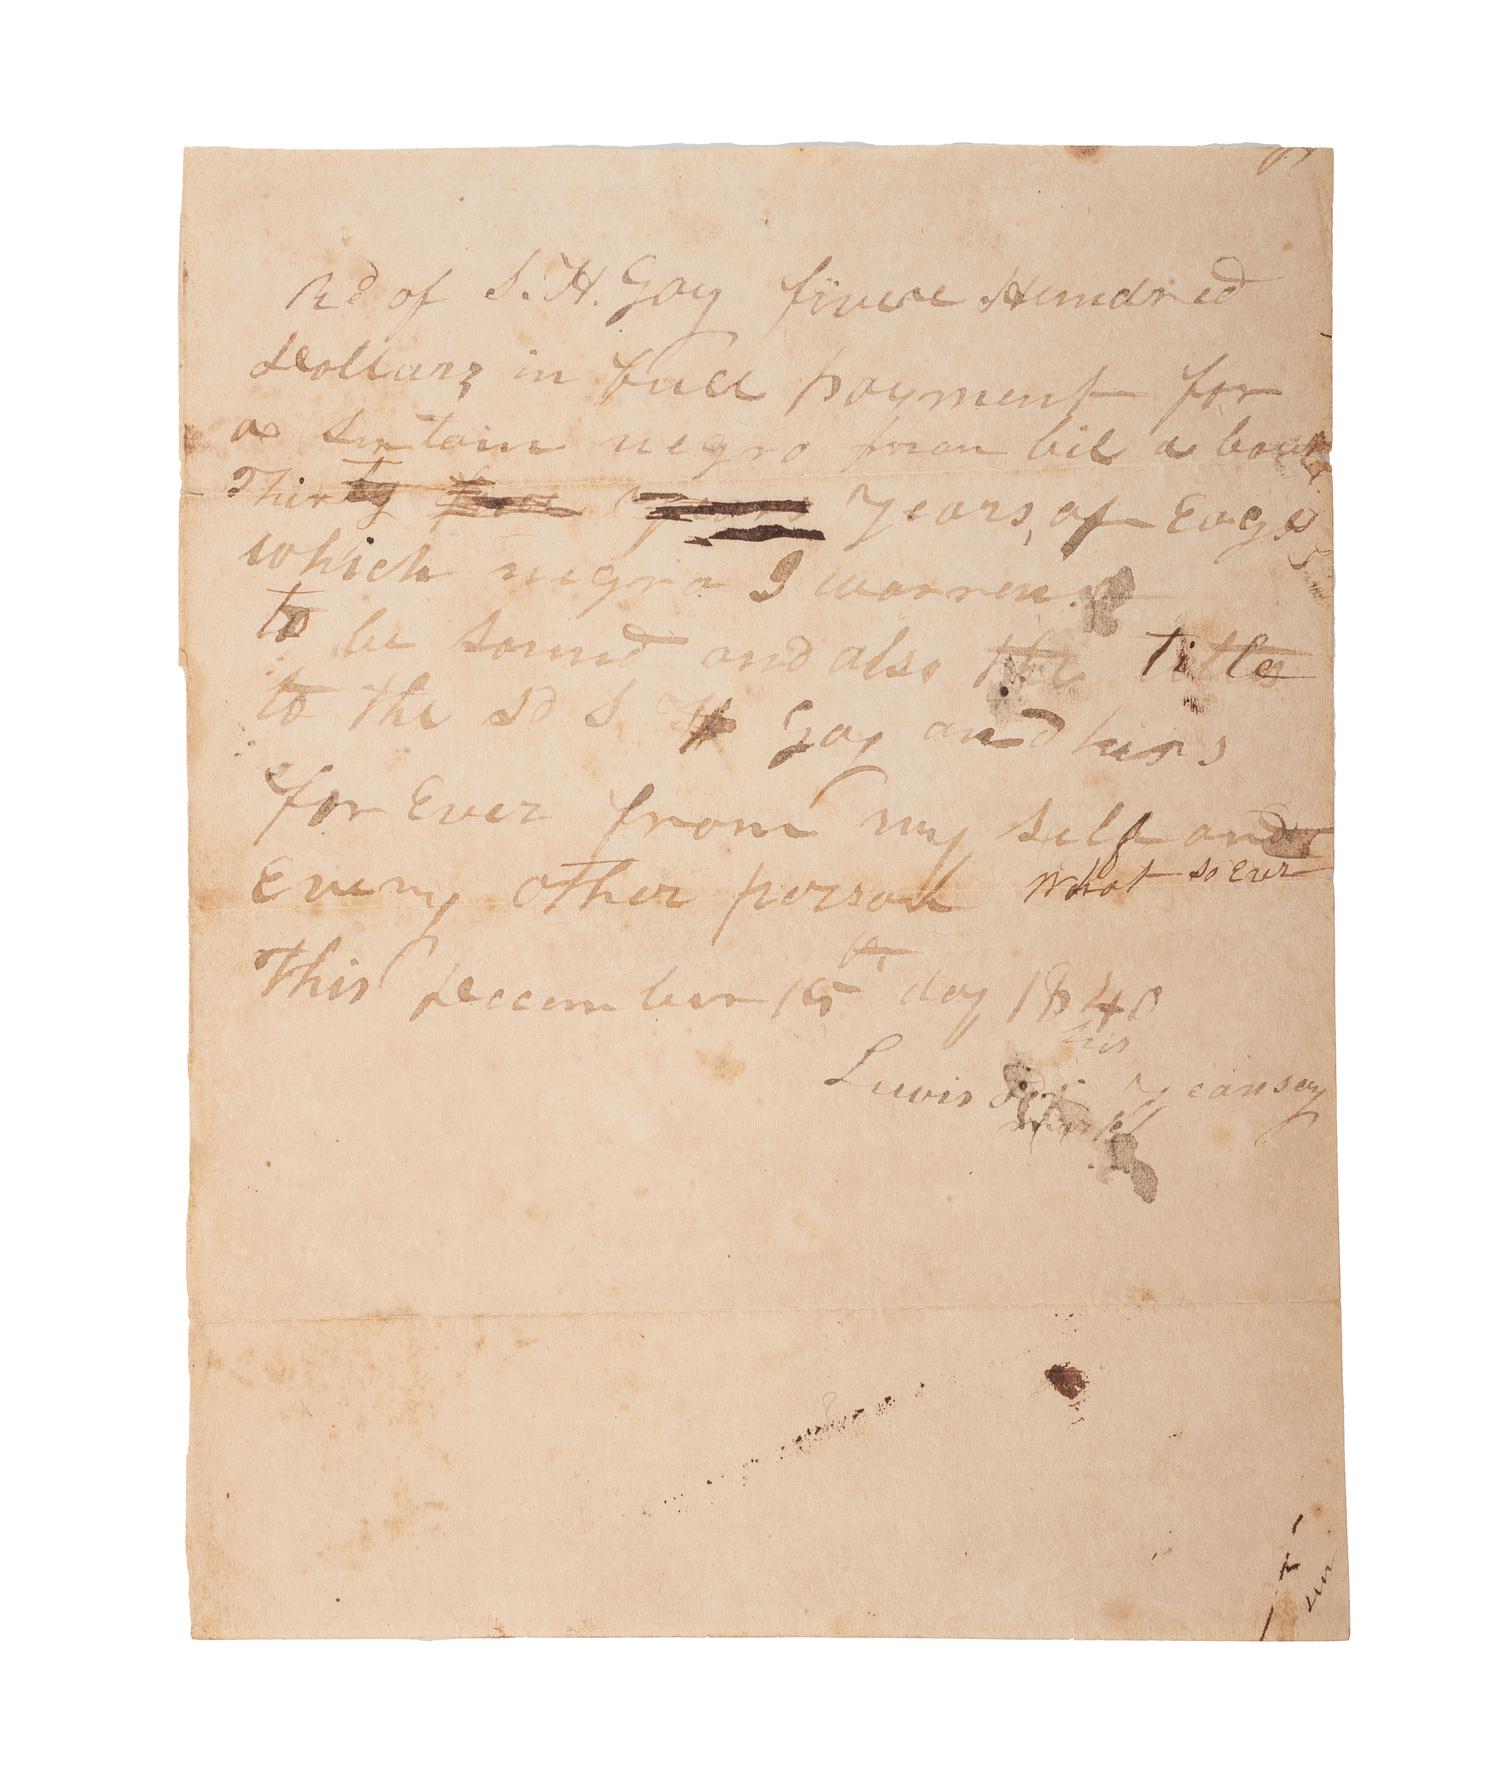 Rd of S. H. Gay five Hundred
Dollars in full payment for
a sertain negro man bil a bout
Thirty five years Years, of Eage
which negro I warrent
to be sound and also the title
to the sd S H Gay and hirs
for Ever from my self and
Every other person what so Ever
This December 15th day 1840
his
Lewis Yeansey
mark